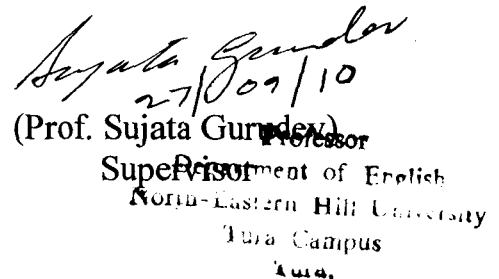 Sujata Gurudev
27/09/10
(Prof. Sujata Gurudev)
Professor
Supervisor
Department of English
North-Eastern Hill University
Tura Campus
Tura.